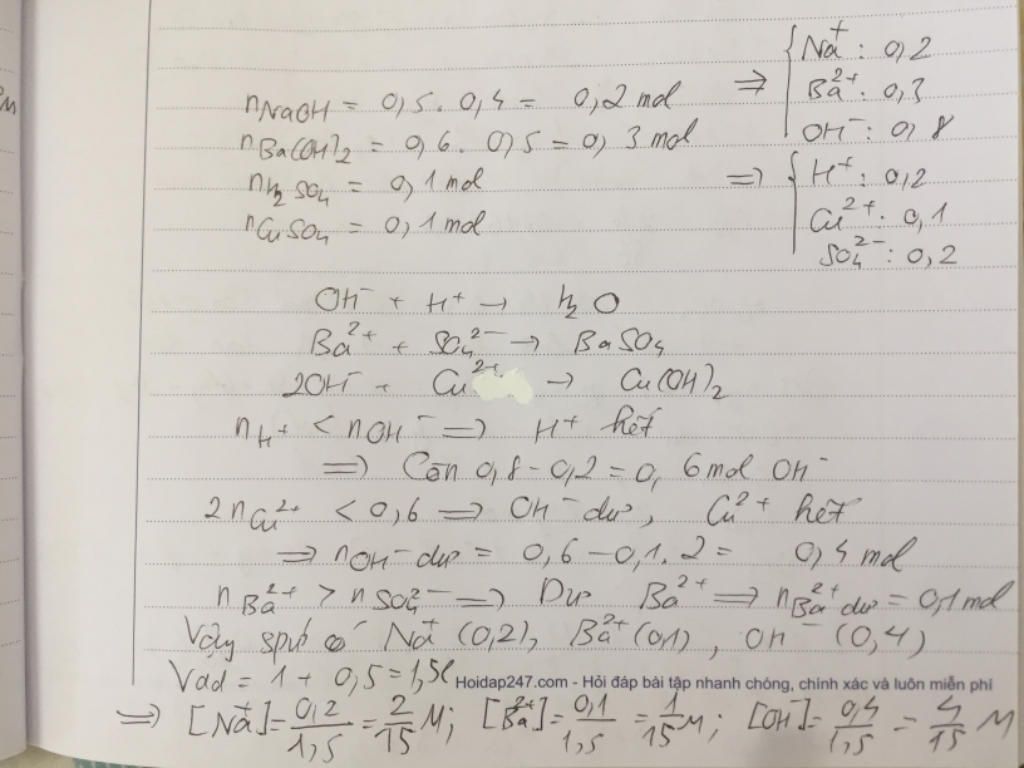 nNaOH = 0,5. 0,4 = 0,2 mol ⇒ { Na⁺ : 0,2
nBa(OH)₂ = 0,6. 0,5 = 0,3 mol Ba²⁺ : 0,3
OH⁻ : 0,8
nH₂SO₄ = 0,1 mol ⇒ { H⁺ : 0,2
nCuSO₄ = 0,1 mol Cu²⁺ : 0,1
SO₄²⁻ : 0,2
OH⁻ + H⁺ → H₂O
Ba²⁺ + SO₄²⁻ → BaSO₄
2OH⁻ + Cu²⁺ → Cu(OH)₂
nH⁺ < nOH⁻ ⇒ H⁺ hết
⇒ Còn 0,8 - 0,2 = 0,6 mol OH⁻
2nCu²⁺ < 0,6 ⇒ OH⁻ dư, Cu²⁺ hết
⇒ nOH⁻ dư = 0,6 - 0,1. 2 = 0,4 mol
nBa²⁺ > nSO₄²⁻ ⇒ Dư Ba²⁺ ⇒ nBa²⁺ dư = 0,1 mol
Vậy spư có Na⁺ (0,2), Ba²⁺ (0,1), OH⁻ (0,4)
Vdd = 1 + 0,5 = 1,5l
Hoidap247.com - Hỏi đáp bài tập nhanh chóng, chính xác và luôn miễn phí
⇒ [Na⁺] = 0,2/1,5 = 2/15 M; [Ba²⁺] = 0,1/1,5 = 1/15 M; [OH⁻] = 0,4/1,5 = 4/15 M